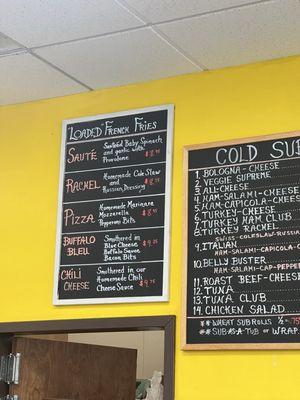 LOADED "FRENCH FRIES
SAUTÉ
Sautéed Baby Spinach
and garlic with
Provolone
RACHEL
Homemade Cole Slaw
and
Russian Dressing
PIZZA
Homemade Marinara
Mozzarella
Pepperoni Bits
BUFFALO
BLEU
Smothered in
Blue Cheese
Buffalo Sauce
Bacon Bits
CHILI
CHEESE
Smothered in our
Homemade Chili
Cheese Sauce
COLD SUB
1. BOLOGNA - CHEESE
2. VEGGIE SUPREME
3. ALL-CHEESE
4. HAM-SALAMI-CHEESE
5. HAM-CAPICOLA-CHEESE
6. TURKEY-CHEESE
7. TURKEY HAM CLUB
8. TURKEY RACHEL
SWISS-COLESLAW-RUSSIA
9. ITALIAN
HAM-SALAMI-CAPICOLA-C
10. BELLY BUSTER
HAM-SALAMI-CAP-PEPPER
11. ROAST BEEF-CHEESE
12. TUNA
13. TUNA CLUB
14. CHICKEN SALAD
** WHEAT SUB ROLLS
** SUB AS A TUB OR WRAP